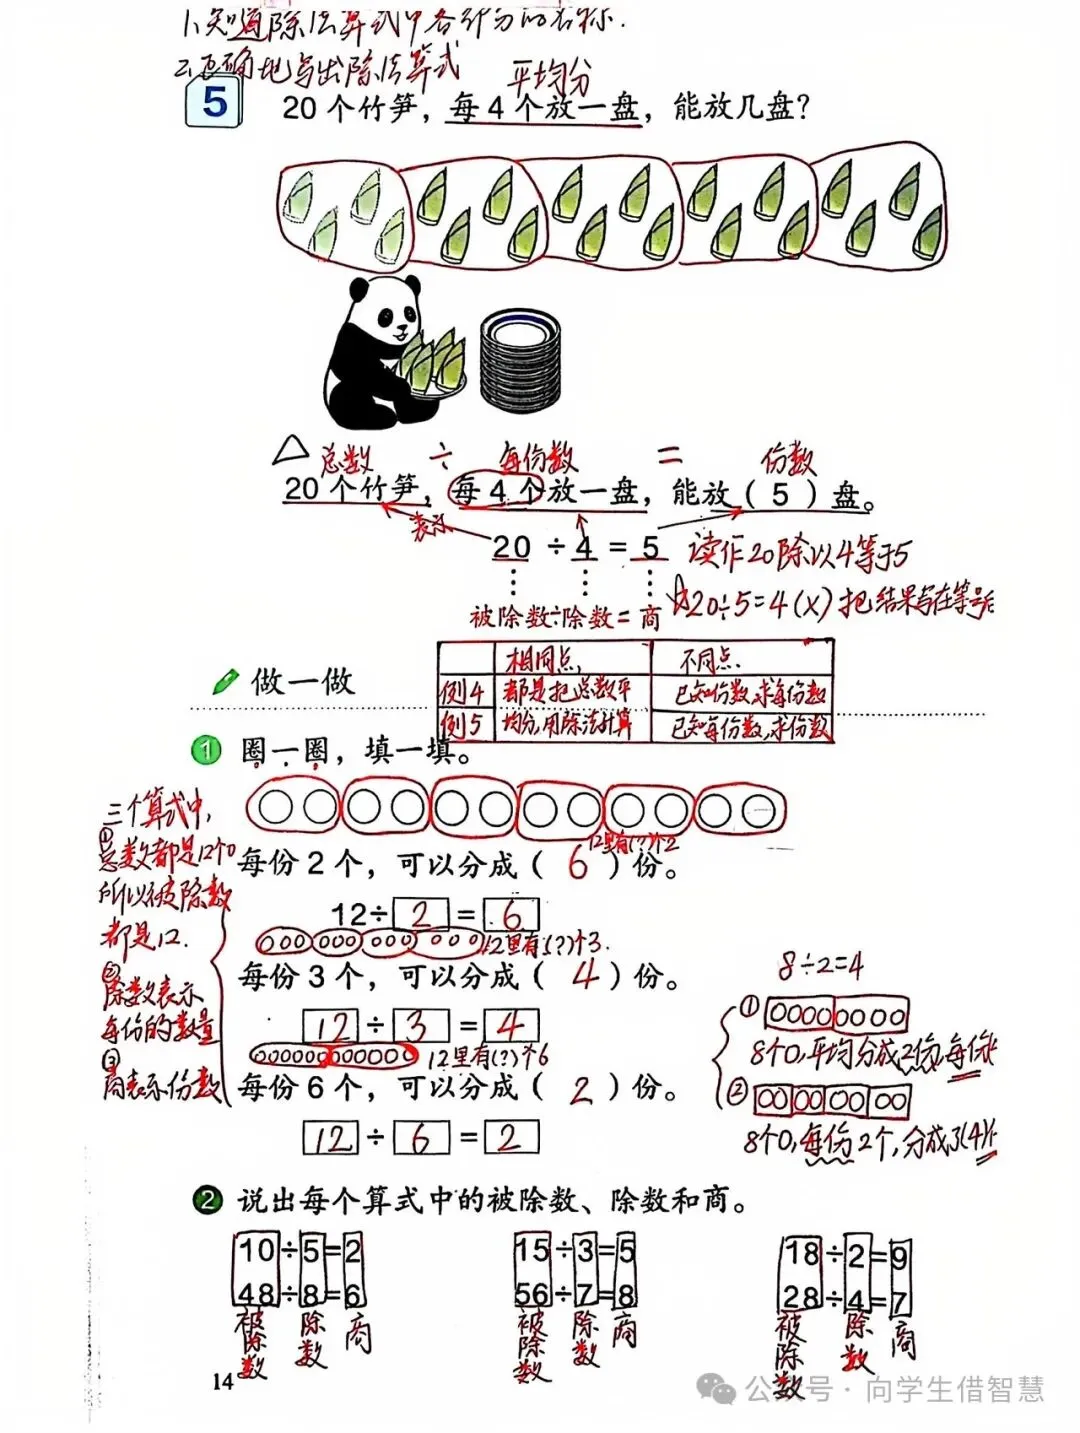 1、知道除法算式中各部分的名称.
2、正确地写出除法算式
平均分
5
20 个竹笋，每 4 个放一盘，能放几盘？
总数 ÷ 每份数 = 份数
20 个竹笋，每 4 个放一盘，能放（ 5 ）盘。
表示
20 ÷ 4 = 5
读作20除以4等于5
被除数÷除数 = 商
☆20÷5=4(×) 把结果写在等号后
相同点 不同点
例4 都是把总数平 已知份数,求每份数
例5 均分,用除法计算 已知每份数,求份数
做一做
1 圈一圈，填一填。
三个算式中,
①总数都是12个○
所以被除数
都是12.
②除数表示
每份的数量
③商表示份数
12里有(?)个2
每份 2 个，可以分成（ 6 ）份。
12÷ 2 = 6
12里有(?)个3.
每份 3 个，可以分成（ 4 ）份。
12 ÷ 3 = 4
12里有(?)个6
每份 6 个，可以分成（ 2 ）份。
12 ÷ 6 = 2
8÷2=4
①
8个○,平均分成2份,每份
②
8个○,每份2个,分成了(4)
2 说出每个算式中的被除数、除数和商。
10÷5=2 15÷3=5 18÷2=9
48÷8=6 56÷7=8 28÷4=7
被除数 除数 商 被除数 除数 商 被除数 除数 商
14
公众号 · 向学生借智慧